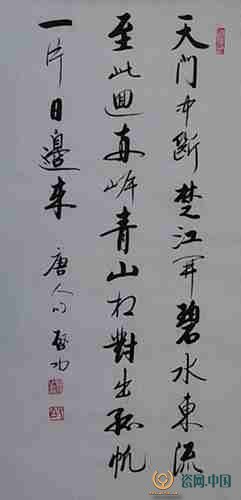 天门中断楚江开碧水東流
至此迴两岸青山相對出孤帆
一片日邊来
唐人句 啓功
资网.中国